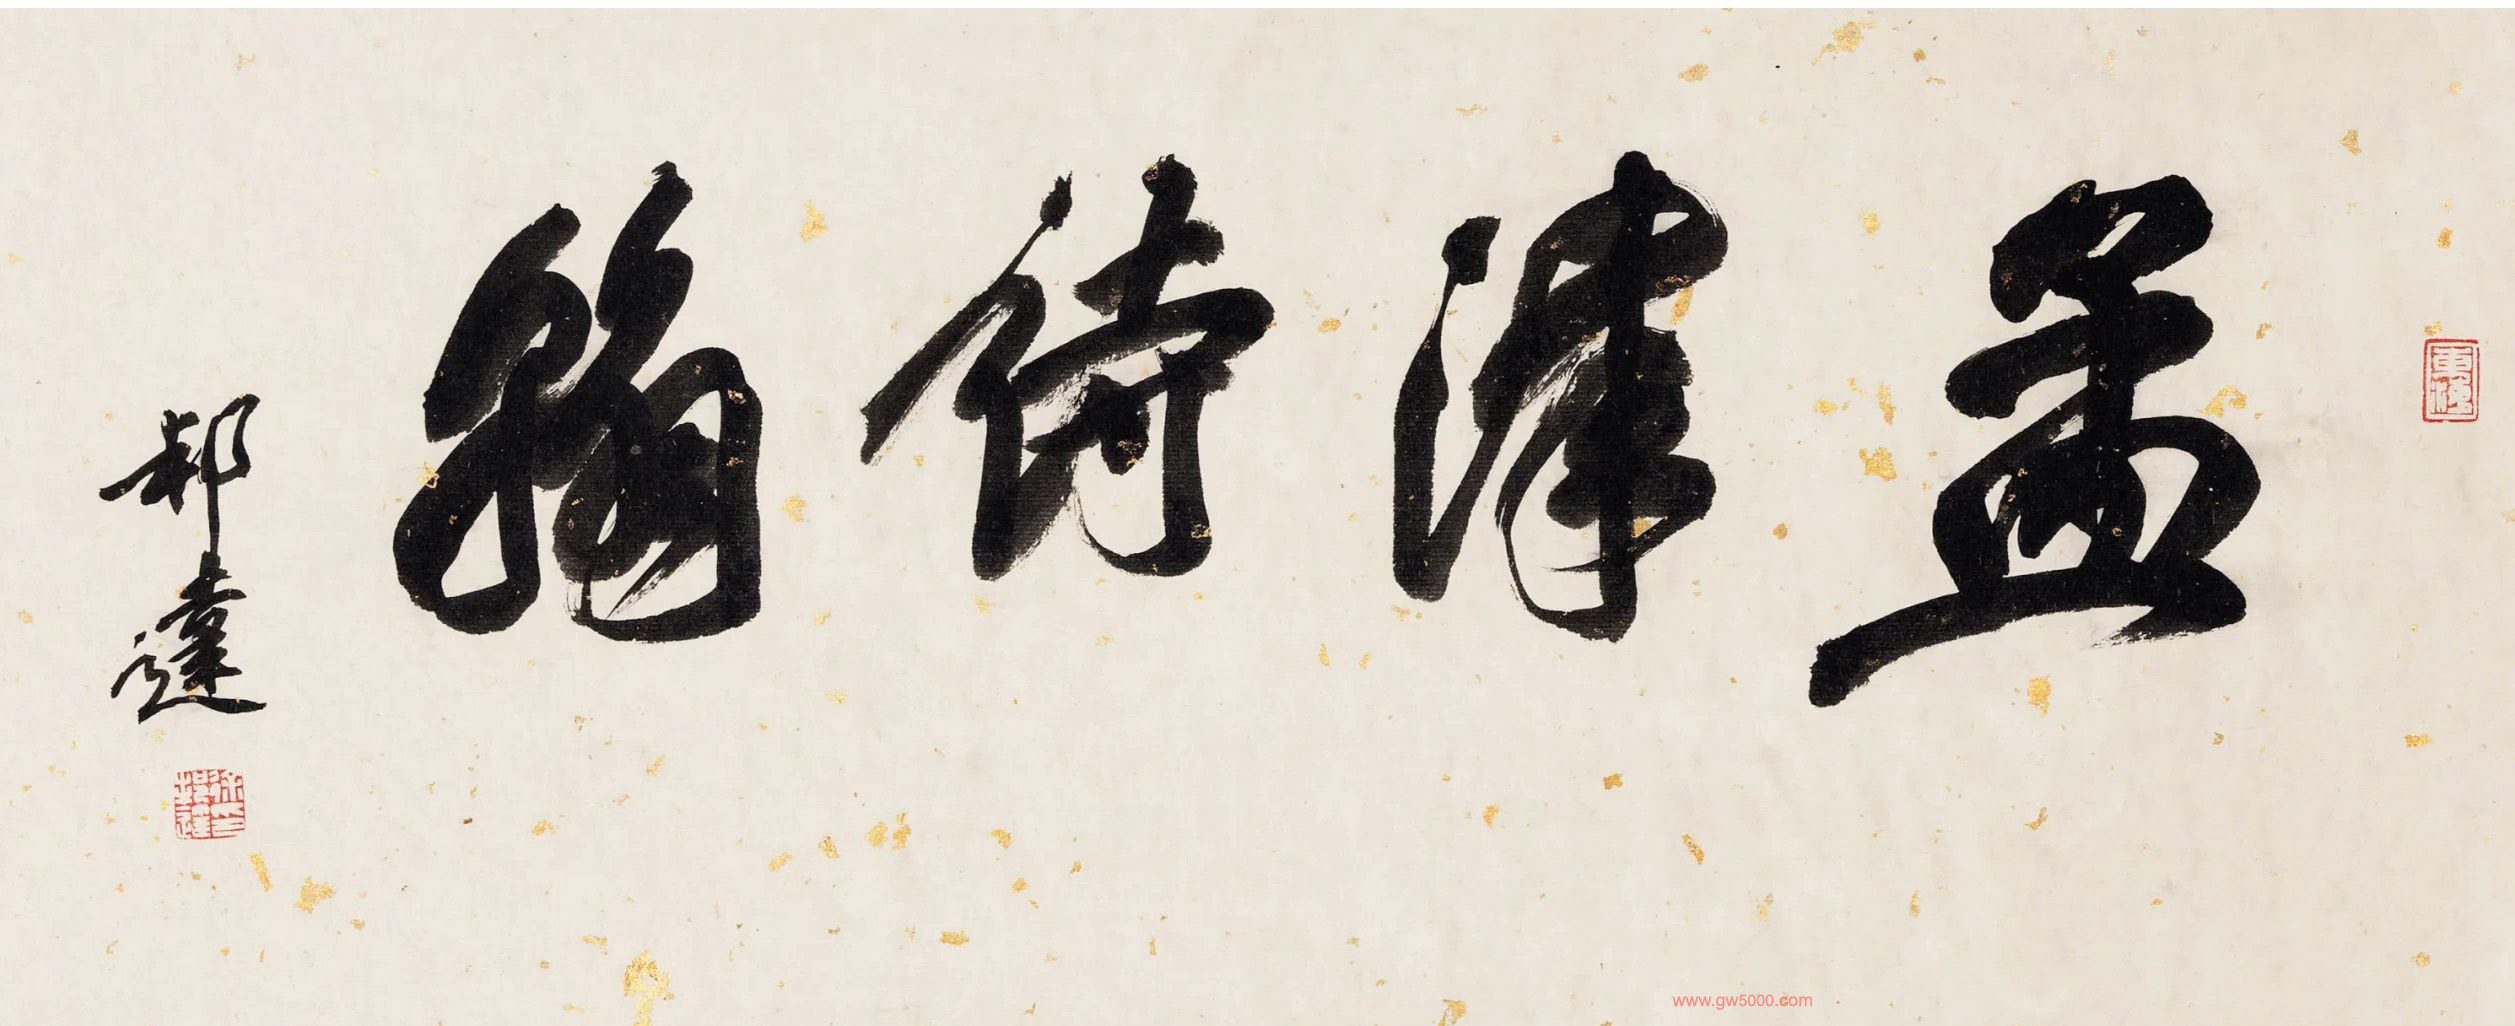 孟津詩翰
邦達
www.gw5000.com